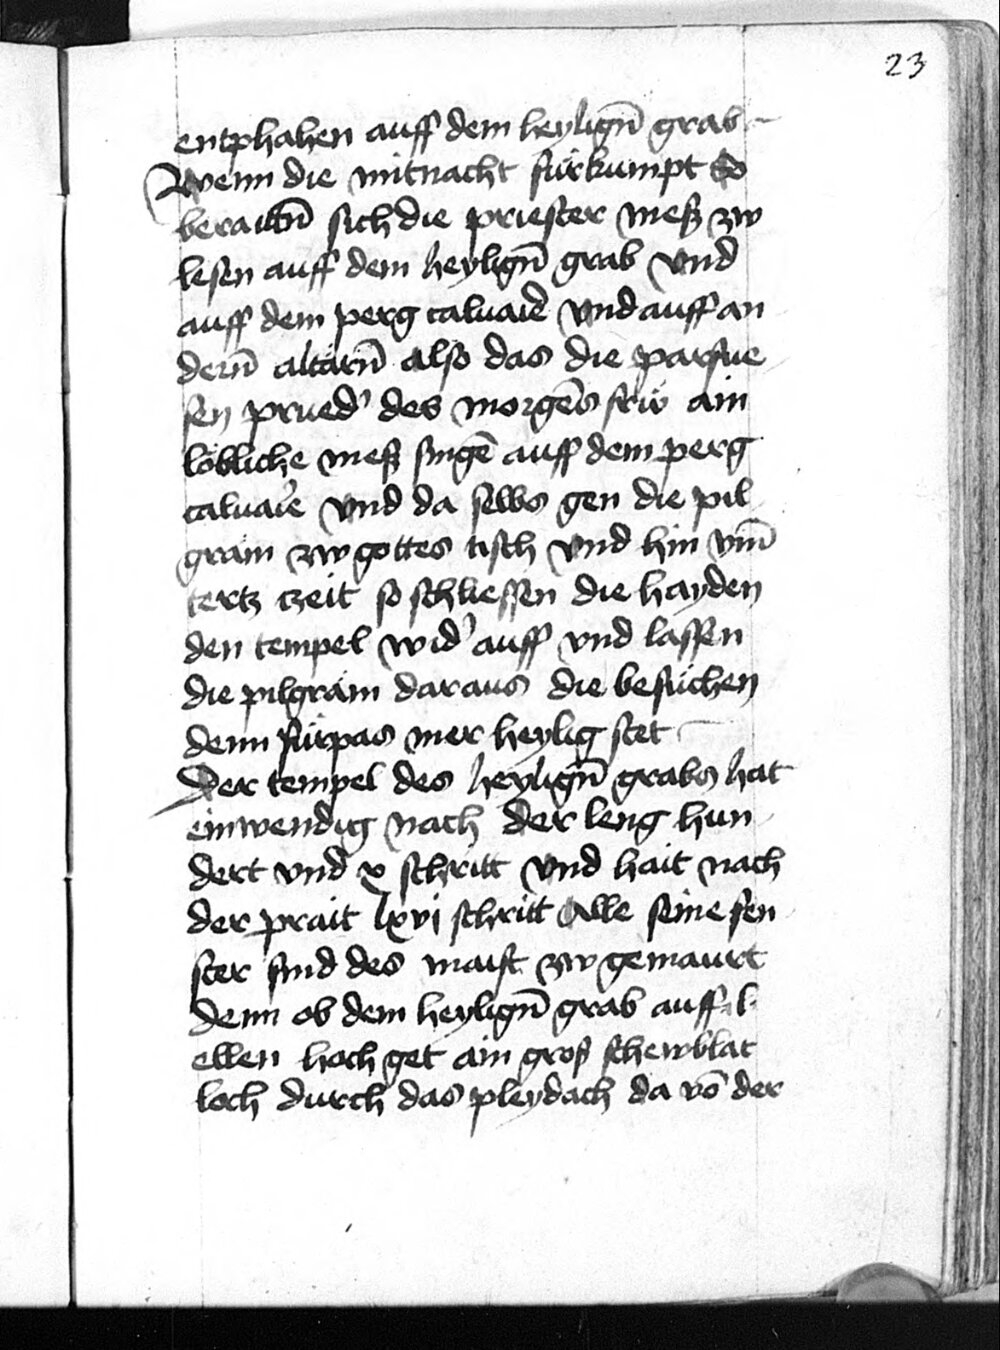 23
entphahen auff dem heyligñ grab
Wenn die mitnacht fürkumpt So
beraittñ sich die priester meß zw
lesen auff dem heyligñ grab vnd
auff dem perg caluarie vnd auff an
derñ altärñ also das die parfue
sen prued' des morgēs frw ain
löbliche meß singē auff dem perg
caluarie vnd da selbs gen die pil
gram zw gottes tisch vnd hin vm̄
tertz tzeit so schliessen die hayden
den tempel wid' auff vnd lassen
die pilgram daraus die besuchen
denn fürpas mer heylig stet
Der tempel des heyligñ grabs hat
einwendig nach der leng hun
dert vnd x schritt vnd hait nach
der prait lxvj schritt Alle seine fen
ster sind des maist zw gemaurt
denn ob dem heyligñ grab auff l
ellen hoch get ain groß schewblat
loch durch das pleydach da vō der